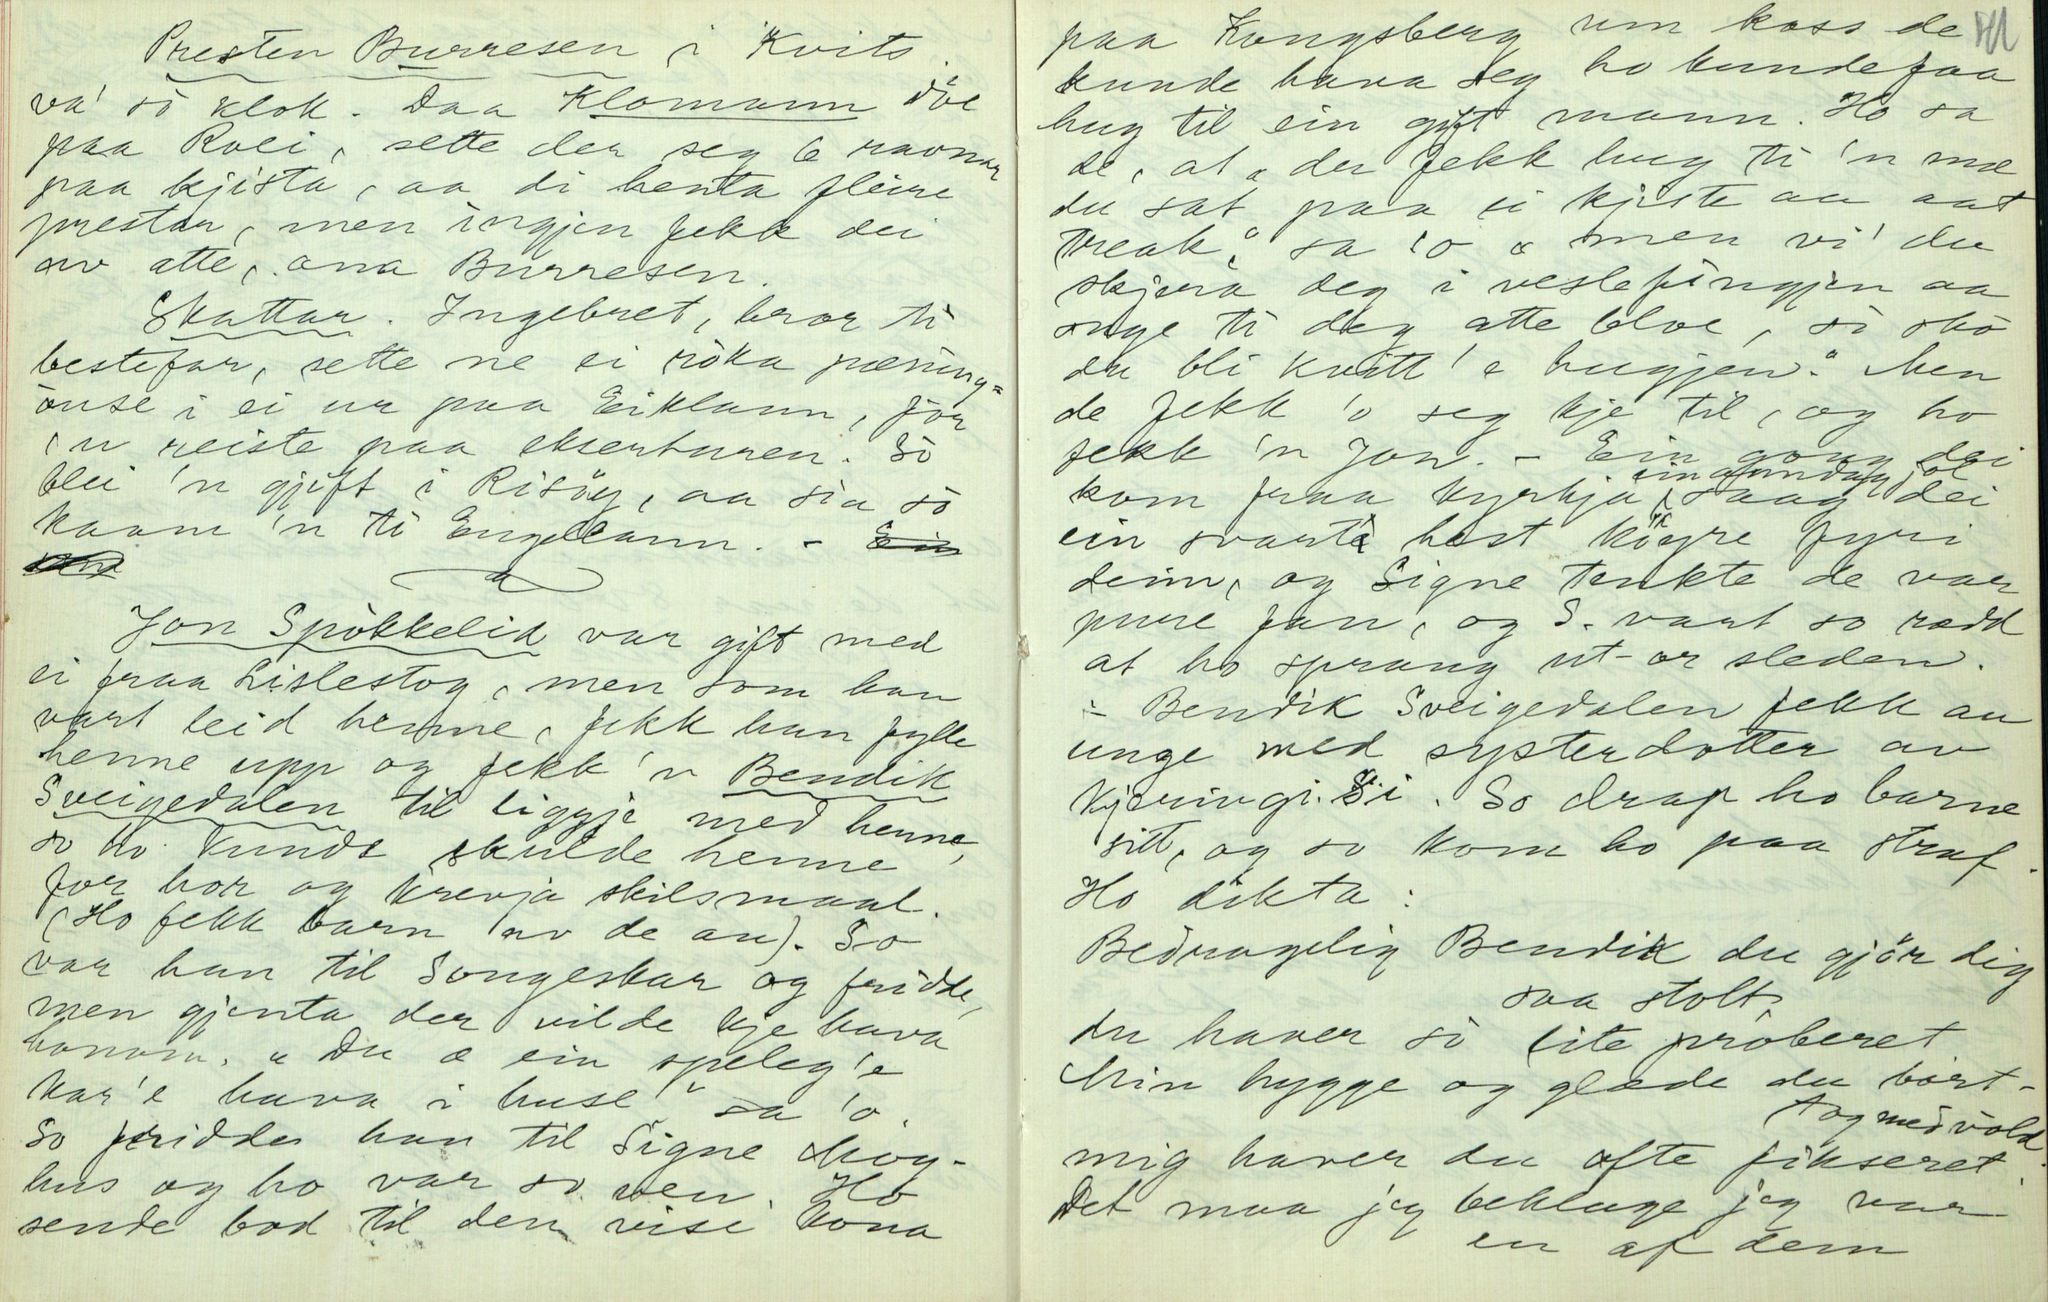 Presten Burresen i Kvits.
va' so klok. Daa Klomann döe
paa Roei, sette der seg 6 ravnar
paa kjista, aa di henta fleire
prestar, men ingjen fekk dei
av atte, ana Burresen.
Skattar. Ingebret, bror ti
bestefar, sette ne ei röka pæning-
önse i ei ur paa Eiklann, för
'n reiste paa ekserturen. So
blei 'n gjift i Risöy, aa sia so
kaam 'n ti Engelann. - Ein
Jon Spökkelid var gift med
ei fraa Lislestog, men som han
vart leid henne, fekk han fylle
henne upp og fekk 'n Bendik
Sveigedalen til liggje med henne,
so ho kunde skulde henne
for hor og krevja skilsmaal.
(Ho fekk barn av de au). So
var han til Songeskar og fridde,
men gjenta der vilde kje hava
honom. „Du æ ein speleg 'e
kar 'e hava i huse" sa 'o.
So fridde han til Signe Mog-
hus og ho var so ven. Ho
sende bod til den visi kona
paa Kongsberg um koss de
kunde hava seg ho kunde faa
hug til ein gift mann. Ho sa
de, at „du fekk hug ti 'n mæ
du sat paa ei kjiste aa aat
treak", sa 'o „men vi' du
skjæra deg i veslefingjen aa
suge ti deg atte bloe, so sko
du bli kvitt 'e hugjen." Men
de fekk 'o seg kje til, og ho
fekk 'n Jon. - Ein gong dei
kom fraa kyrkja ein sundag jol saag dei
ein svarte hest köyre fyri
deim, og Signe tenkte de var
pure fan, og S. vart so rædd
at ho sprang ut-or sleden.
- Bendik Sveigedalen fekk au
unge med systerdotter av
kjeringi si. So drap ho barne
sitt, og so kom ho paa straf.
Ho dikta:
Bedragelig Bendik du gjör dig
saa stolt,
du haver so lite proberet
Min hygge og glæde du bort-
tog med vold.
mig haver du ofte fikseret
Det maa jeg beklage jeg var
en af dem